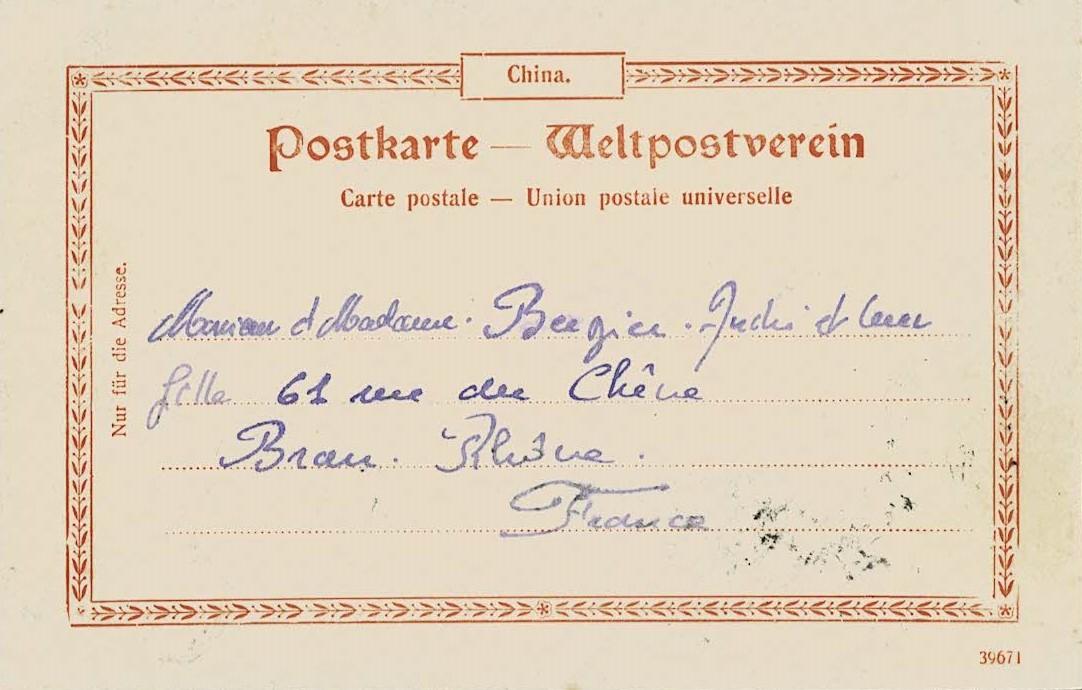 China.
Postkarte — Weltpostverein
Carte postale — Union postale universelle
Nur für die Adresse.
et Madame. et leur
fille 61 rue du Chêne
Bron. Rhône.
France
39671